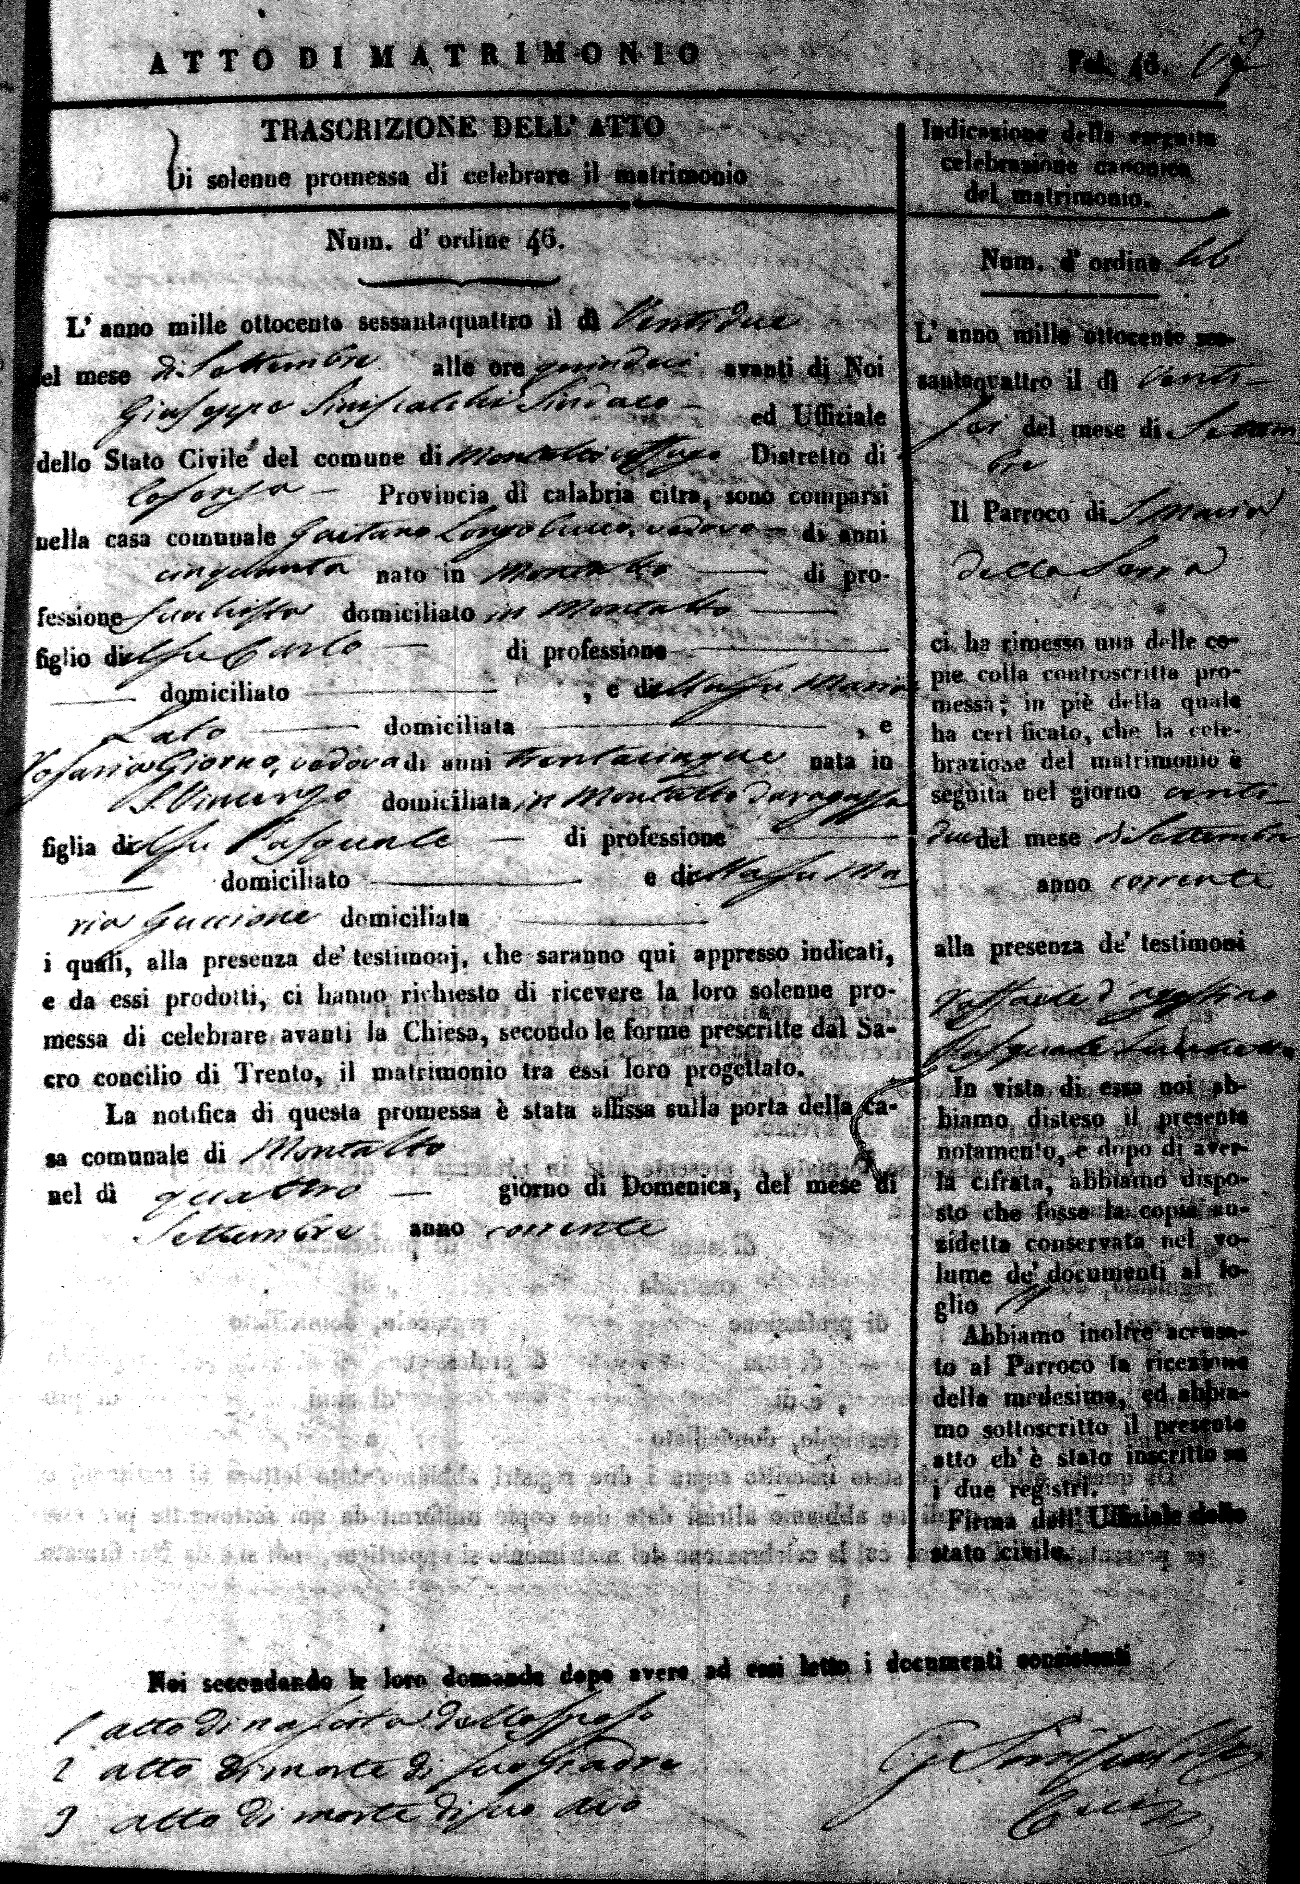 ATTO DI MATRIMONIO
Fol. 46.
TRASCRIZIONE DELL' ATTO
Di solenne promessa di celebrare il matrimonio
Num. d' ordine 46.
L' anno mille ottocento sessantaquattro il dì Ventidue
el mese di Settembre alle ore quindici avanti di Noi
Giuseppe Siniscalchi Sindaco ed Uffiziale
dello Stato Civile del comune di Montalto Uffugo Distretto di
Cosenza Provincia di calabria citra, sono comparsi
nella casa comunale Gaetano Longobucco, vedovo di anni
cinquanta nato in Montalto di pro-
fessione domiciliato in Montalto
figlio di fu Carlo di professione
domiciliato , e della fu Maria
Lato domiciliata , e
Rosaria Giorno, vedova di anni trentacinque nata in
S. Vincenzo domiciliata in Montalto da ragazza
figlia di fu Pasquale di professione
domiciliato e della fu Ma-
ria Guccione domiciliata
i quali, alla presenza de' testimonj, che saranno qui appresso indicati,
e da essi prodotti, ci hanno richiesto di ricevere la loro solenne pro-
messa di celebrare avanti la Chiesa, secondo le forme prescritte dal Sa-
cro concilio di Trento, il matrimonio tra essi loro progettato.
La notifica di questa promessa è stata affissa sulla porta della ca-
sa comunale di Montalto
nel dì quattro giorno di Domenica, del mese di
Settembre anno corrente
Indicazione della eseguita
celebrazione canonica
del matrimonio.
Num. d' ordine 46
L' anno mille ottocento ses-
santaquattro il dì venti-
sei del mese di Settem
bre
Il Parroco di S. Maria
della Serra
ci ha rimesso una delle co-
pie colla controscritta pro-
messa; in piè della quale
ha certificato, che la cele-
brazione del matrimonio è
seguita nel giorno venti-
due del mese di Settembre
anno corrente
alla presenza de' testimoni
Raffaele d'Agostino
Pasquale
In vista di essa noi ab-
biamo disteso il presente
notamento, e dopo di aver-
la cifrata, abbiamo dispo-
sto che fosse la copia an-
zidetta conservata nel vo-
lume de' documenti al fo-
glio
Abbiamo inoltre accusa-
to al Parroco la ricezione
della medesima, ed abbia-
mo sottoscritto il presente
atto ch' è stato inscritto su
i due registri.
Firma dell' Uffiziale dello
stato civile.
Noi secondando le loro domande dopo avere ad essi letto i documenti consistenti
1 atto di nascita dello sposo
2 atto di morte di suo Padre
3 atto di morte di suo avo
G Siniscalchi